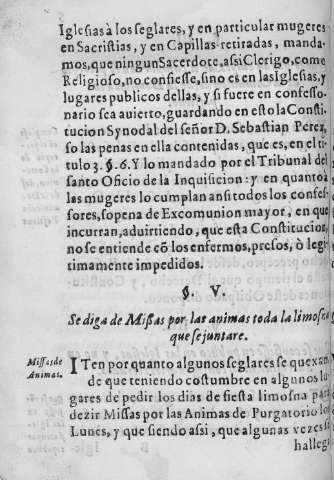 Iglesias à los seglares, y en particular mugeres
en Sacristias, y en Capillas retiradas, manda-
mos, que ningun Sacerdote, assi Clerigo, como
Religioso, no confiesse, sino es en las Iglesias, y
lugares publicos dellas, y si fuere en confesso-
nario sea auierto, guardando en esto la Consti
tucion Synodal del señor D. Sebastian Perez,
so las penas en ella contenidas, que es, en el tí
tulo 3. §. 6. Y lo mandado por el Tribunal del
santo Oficio de la Inquisicion: y en quanto à
las mugeres lo cumplan ansi todos los confes-
sores, sopena de Excomunion mayor, en que
incurran, aduirtiendo, que esta Constitucion
no se entiende cõ los enfermos, presos, ò legi
timamente impedidos.
§. V.
Se diga de Missas por las animas toda la limosna
que se juntare.
Missas de
Animas.
ITen por quanto algunos seglares se quexan
de que teniendo costumbre en algunos lu
gares de pedir los dias de fiesta limosna para
dezir Missas por las Animas de Purgatorio los
Lunes, y que siendo assi, que algunas vezes se
hallegã